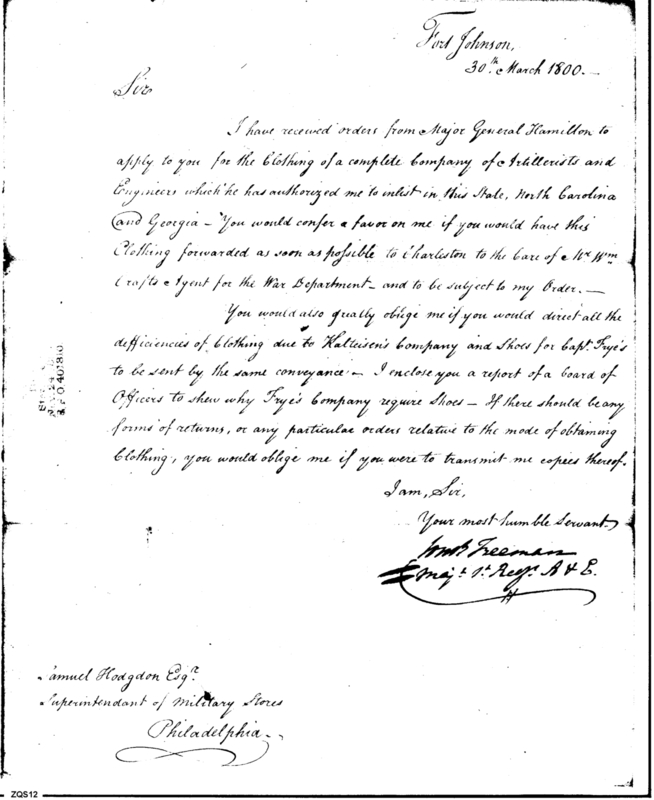 Fort Johnson,
30th March 1800.—
Sir
I have received orders from Major General Hamilton to
apply to you for the Clothing of a complete Company of Artillerists and
Engineers which he has authorized me to inlist in this State, North Carolina
and Georgia — You would confer a favor on me if you would have this
Clothing forwarded as soon as possible to Charleston to the Care of Mr Wm
Crafts Agent for the War Department — and to be subject to my Order. —
You would also greatly oblige me if you would direct all the
defficiencies of Clothing due to Kalteisen's Company and Shoes for Capt. Frye's
to be sent by the same conveyance — I enclose you a report of a board of
Officers to shew why Frye's Company require Shoes — If there should be any
forms of returns, or any particular orders relative to the mode of obtaining
Clothing, you would oblige me if you were to transmit me copies thereof.
I am, Sir,
Your most humble Servant
Freeman
Majr 1st Regt A & E.
Samuel Hodgdon Esqr
Superintendant of Military Stores
Philadelphia.
ZQS12